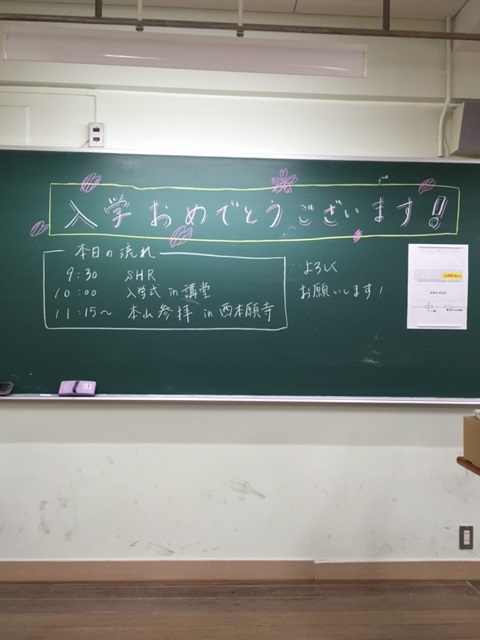 入学おめでとうございます!!
本日の流れ
9:30 SHR
10:00 入学式 in 講堂
11:15~ 本山参拝 in 西本願寺
よろしく
お願いします!